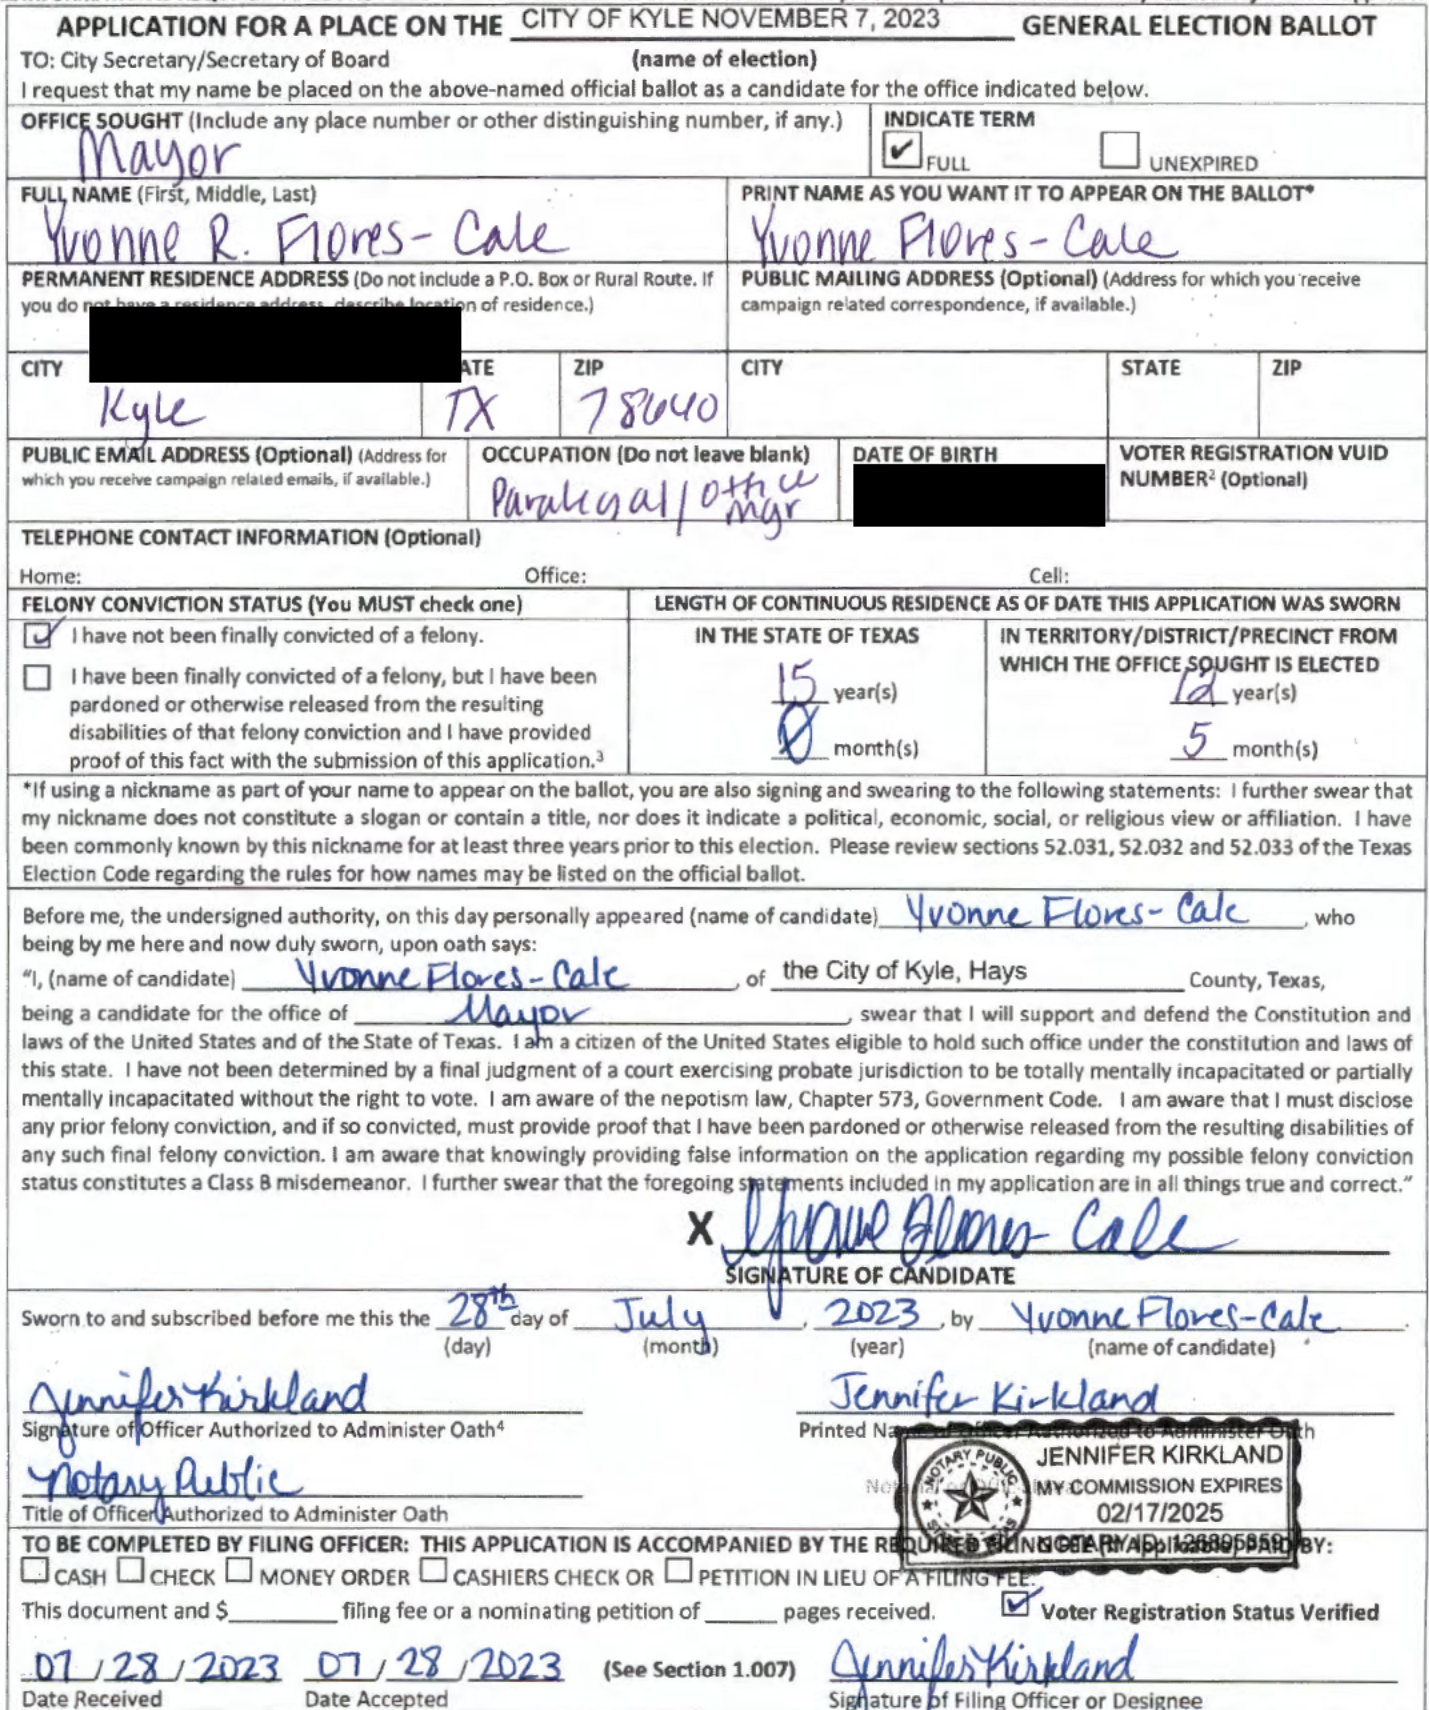 APPLICATION FOR A PLACE ON THE CITY OF KYLE NOVEMBER 7, 2023 GENERAL ELECTION BALLOT
TO: City Secretary/Secretary of Board (name of election)
I request that my name be placed on the above-named official ballot as a candidate for the office indicated below.
OFFICE SOUGHT (Include any place number or other distinguishing number, if any.) INDICATE TERM
Mayor ✔ FULL UNEXPIRED
FULL NAME (First, Middle, Last) PRINT NAME AS YOU WANT IT TO APPEAR ON THE BALLOT*
Yvonne R. Flores-Cale Yvonne Flores-Cale
PERMANENT RESIDENCE ADDRESS (Do not include a P.O. Box or Rural Route. If PUBLIC MAILING ADDRESS (Optional) (Address for which you receive
you do not have a residence address, describe location of residence.) campaign related correspondence, if available.)
CITY ATE ZIP CITY STATE ZIP
Kyle TX 78640
PUBLIC EMAIL ADDRESS (Optional) (Address for OCCUPATION (Do not leave blank) DATE OF BIRTH VOTER REGISTRATION VUID
which you receive campaign related emails, if available.) Paralegal/Office NUMBER² (Optional)
mgr
TELEPHONE CONTACT INFORMATION (Optional)
Home: Office: Cell:
FELONY CONVICTION STATUS (You MUST check one) LENGTH OF CONTINUOUS RESIDENCE AS OF DATE THIS APPLICATION WAS SWORN
I have not been finally convicted of a felony. IN THE STATE OF TEXAS IN TERRITORY/DISTRICT/PRECINCT FROM
WHICH THE OFFICE SOUGHT IS ELECTED
I have been finally convicted of a felony, but I have been 15 year(s) 12 year(s)
pardoned or otherwise released from the resulting
disabilities of that felony conviction and I have provided 0 month(s) 5 month(s)
proof of this fact with the submission of this application.³
*If using a nickname as part of your name to appear on the ballot, you are also signing and swearing to the following statements: I further swear that
my nickname does not constitute a slogan or contain a title, nor does it indicate a political, economic, social, or religious view or affiliation. I have
been commonly known by this nickname for at least three years prior to this election. Please review sections 52.031, 52.032 and 52.033 of the Texas
Election Code regarding the rules for how names may be listed on the official ballot.
Before me, the undersigned authority, on this day personally appeared (name of candidate) Yvonne Flores-Cale, who
being by me here and now duly sworn, upon oath says:
"I, (name of candidate) Yvonne Flores-Cale, of the City of Kyle, Hays County, Texas,
being a candidate for the office of Mayor, swear that I will support and defend the Constitution and
laws of the United States and of the State of Texas. I am a citizen of the United States eligible to hold such office under the constitution and laws of
this state. I have not been determined by a final judgment of a court exercising probate jurisdiction to be totally mentally incapacitated or partially
mentally incapacitated without the right to vote. I am aware of the nepotism law, Chapter 573, Government Code. I am aware that I must disclose
any prior felony conviction, and if so convicted, must provide proof that I have been pardoned or otherwise released from the resulting disabilities of
any such final felony conviction. I am aware that knowingly providing false information on the application regarding my possible felony conviction
status constitutes a Class B misdemeanor. I further swear that the foregoing statements included in my application are in all things true and correct."
X Yvonne Flores-Cale
SIGNATURE OF CANDIDATE
Sworn to and subscribed before me this the 28th day of July, 2023, by Yvonne Flores-Cale.
(day) (month) (year) (name of candidate)
Jennifer Kirkland Jennifer Kirkland
Signature of Officer Authorized to Administer Oath⁴ Printed Name of Officer Authorized to Administer Oath
Notary Public
Title of Officer Authorized to Administer Oath
NOTARY PUBLIC STATE OF TEXAS
JENNIFER KIRKLAND
MY COMMISSION EXPIRES
02/17/2025
NOTARY ID: 126895859
TO BE COMPLETED BY FILING OFFICER: THIS APPLICATION IS ACCOMPANIED BY THE REQUIRED FILING FEE (If Applicable) PAID BY:
CASH CHECK MONEY ORDER CASHIERS CHECK OR PETITION IN LIEU OF A FILING FEE.
This document and $ filing fee or a nominating petition of pages received. ✔ Voter Registration Status Verified
07/28/2023 07/28/2023 (See Section 1.007) Jennifer Kirkland
Date Received Date Accepted Signature of Filing Officer or Designee